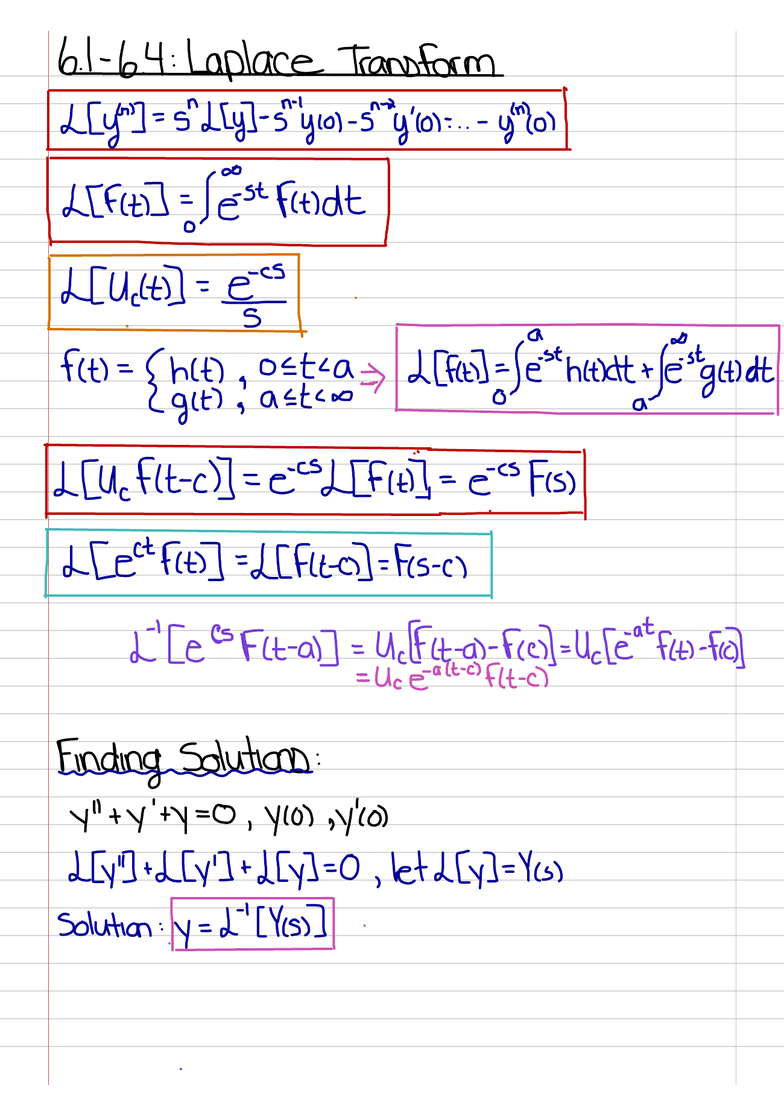 6.1-6.4: Laplace Transform
ℒ[y⁽ⁿ⁾] = sⁿℒ[y] - sⁿ⁻¹y(0) - sⁿ⁻²y'(0) - ... - y⁽ⁿ⁾(0)
ℒ[f(t)] = ∫₀^∞ e^{-st} f(t)dt
ℒ[U_c(t)] = e^{-cs}/s
f(t) = { h(t), 0≤t<a → ℒ[f(t)] = ∫₀^a e^{-st} h(t)dt + ∫ₐ^∞ e^{-st} g(t)dt
{ g(t), a≤t<∞
ℒ[U_c f(t-c)] = e^{-cs} ℒ[f(t)] = e^{-cs} F(s)
ℒ[e^{ct} f(t)] = ℒ[f(t-c)] = F(s-c)
ℒ⁻¹[e^{cs} F(t-a)] = U_c[f(t-a) - f(c)] = U_c[e^{-at} f(t) - f(c)]
= U_c e^{-a(t-c)} f(t-c)
Finding Solutions:
y'' + y' + y = 0, y(0), y'(0)
ℒ[y''] + ℒ[y'] + ℒ[y] = 0, let ℒ[y] = Y(s)
Solution: y = ℒ⁻¹[Y(s)]